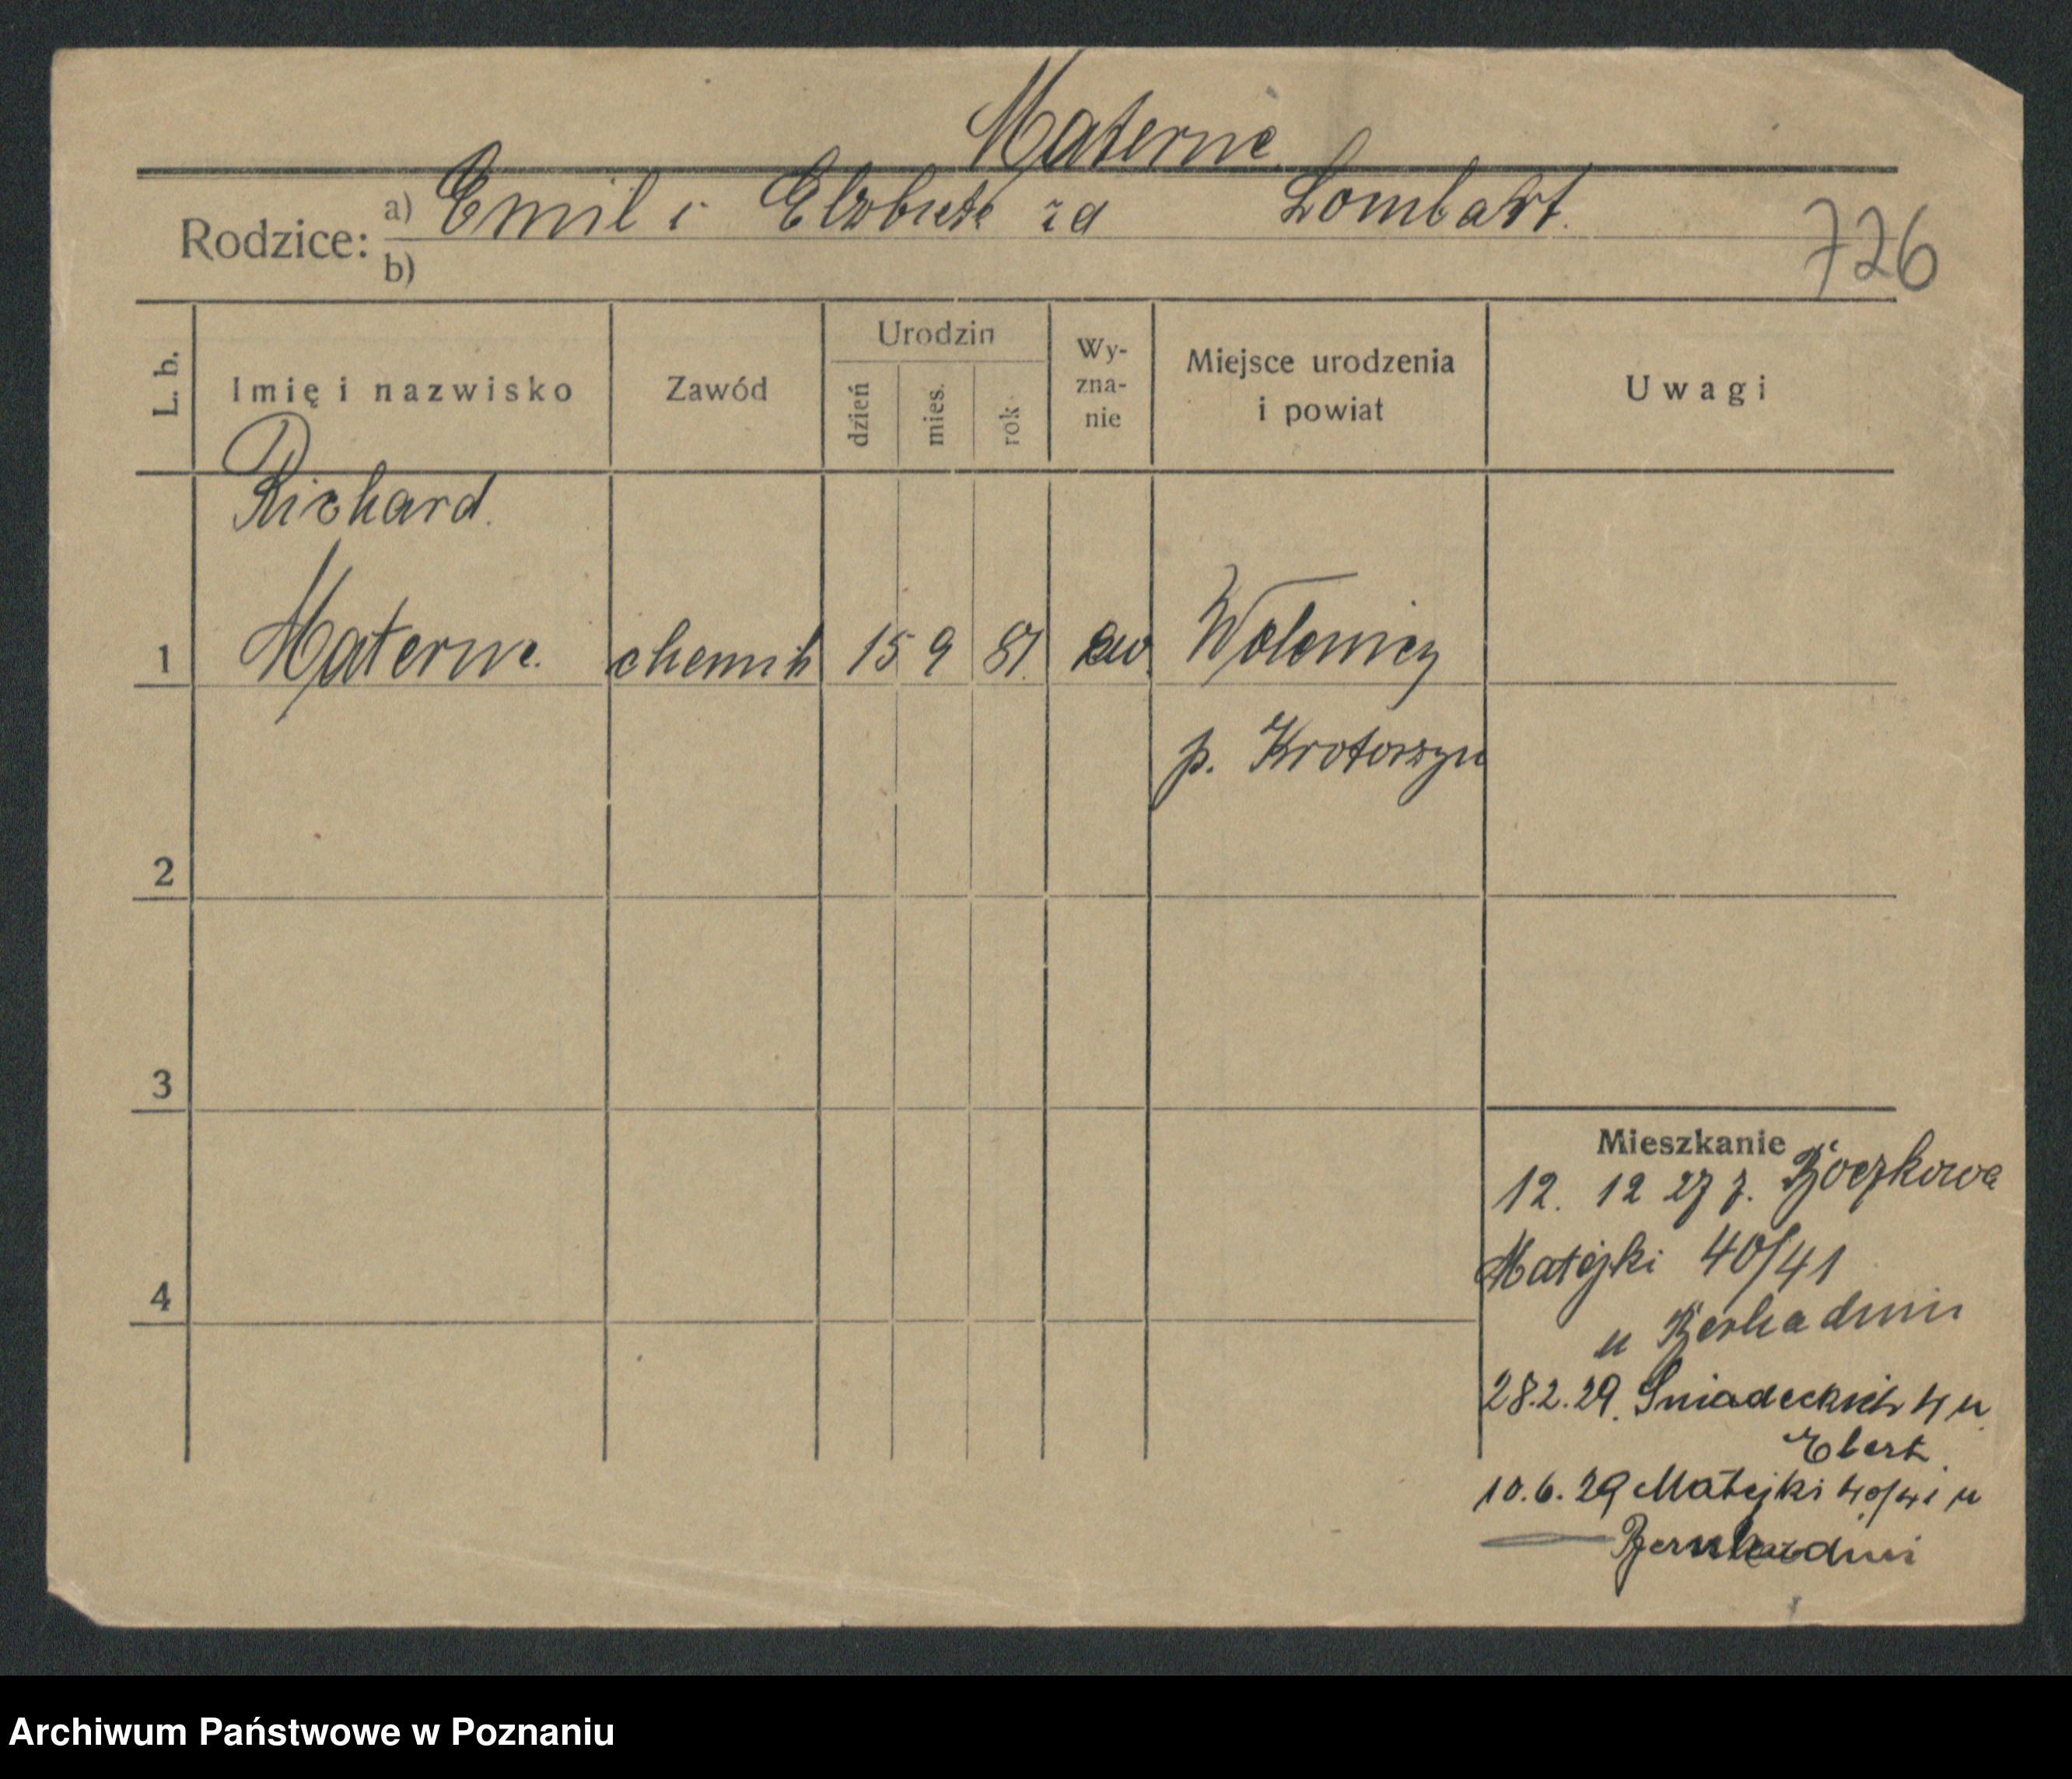 Materne
Rodzice: a) Emil i Elzbieta zd Lombart.
b)
726
L. b. Imię i nazwisko Zawód Urodzin dzień mies. rok Wy-zna-nie Miejsce urodzenia i powiat Uwagi
Richard
1 Materne. chemik 15 9 81. ew. Wolenicy
p. Krotoszyn
2
3
Mieszkanie
12. 12 27 z. Boczkowa
Matejki 40/41
4
u
28.2.29. Sniadeckich 4 u
Ebert.
10.6.29 Matejki 40/41 u
Bernhardini
Archiwum Państwowe w Poznaniu